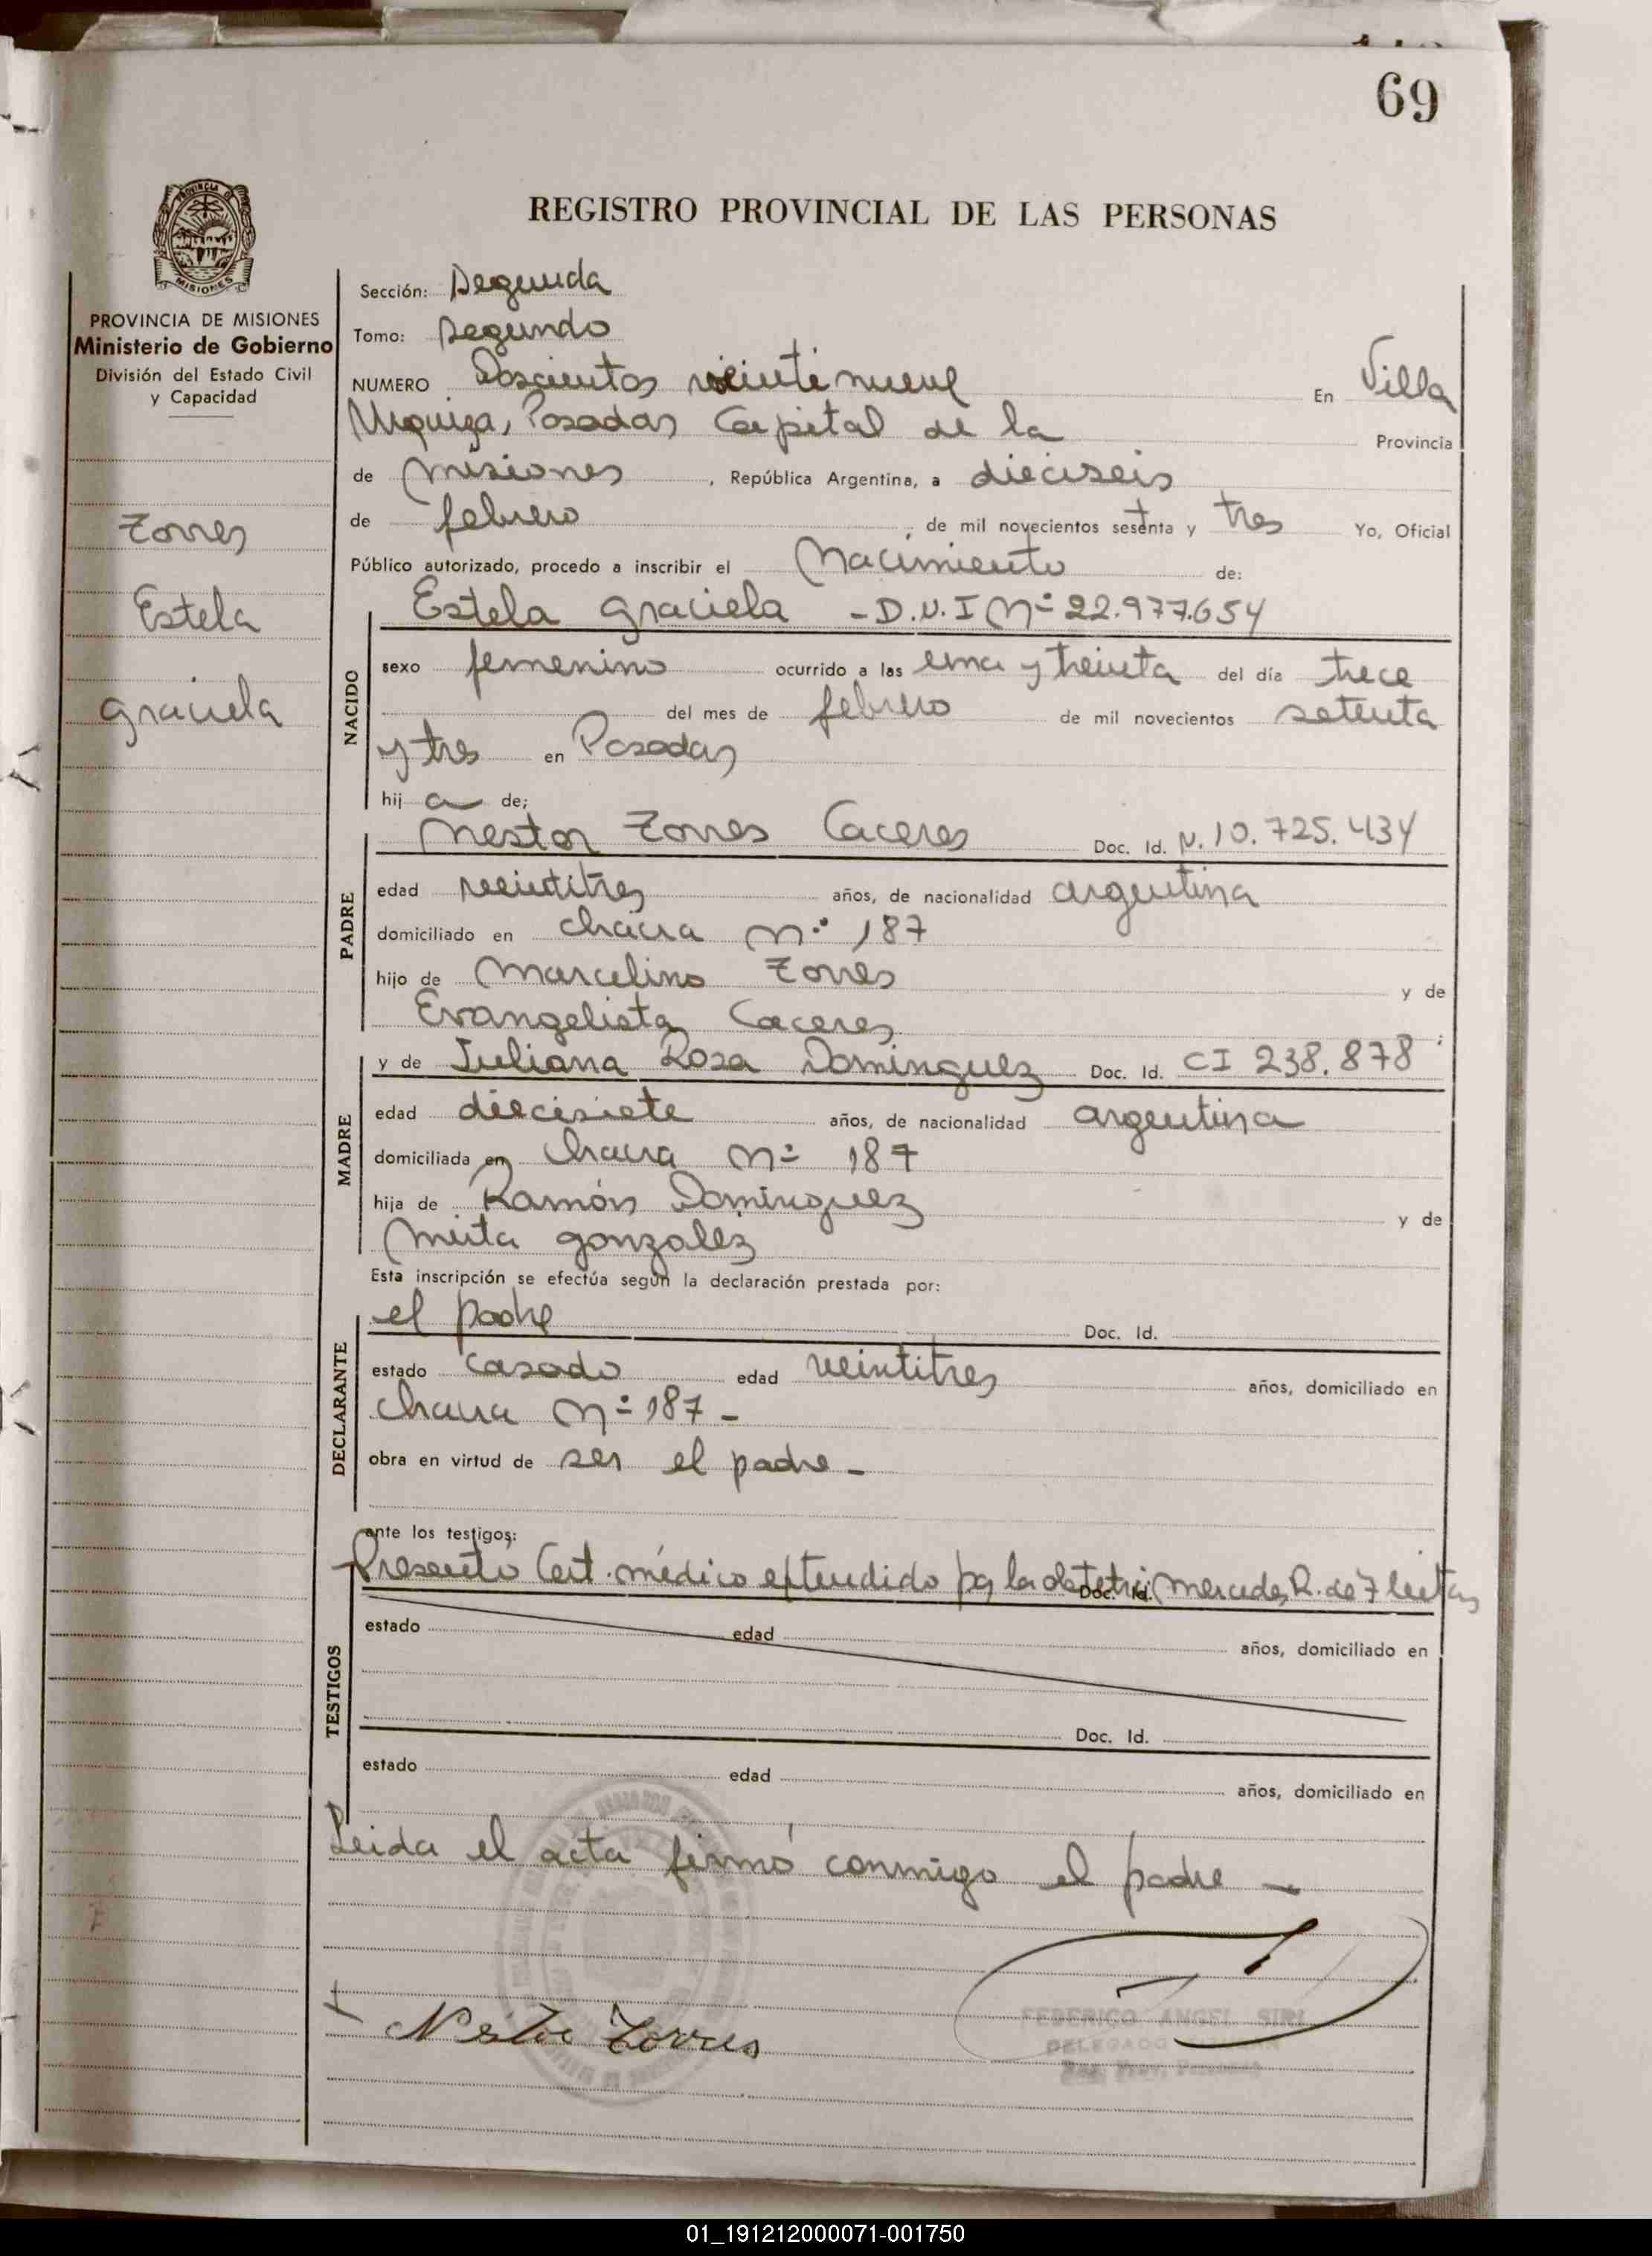 69
REGISTRO PROVINCIAL DE LAS PERSONAS
PROVINCIA DE
MISIONES
PROVINCIA DE MISIONES
Ministerio de Gobierno
División del Estado Civil
y Capacidad
Torres
Estela
Graciela
Sección: Segunda
Tomo: Segundo
NUMERO Doscientos veinte nueve En Villa
Urquiza, Posadas Capital de la Provincia
de Misiones, República Argentina, a dieciseis
de febrero de mil novecientos sesenta y tres Yo, Oficial
Público autorizado, procedo a inscribir el Nacimiento de:
Estela Graciela - D.N.I Nº 22.977.654
NACIDO
sexo femenino ocurrido a las una y treinta del día trece
del mes de febrero de mil novecientos setenta
y tres en Posadas
hij a de;
Nestor Torres Caceres Doc. Id. N. 10.725.434
PADRE
edad veintitres años, de nacionalidad argentina
domiciliado en chacra Nº 187
hijo de Marcelino Torres y de
Evangelista Caceres
MADRE
y de Juliana Rosa Dominguez Doc. Id. CI 238.878
edad diecisiete años, de nacionalidad argentina
domiciliada en Chacra Nº 187
hija de Ramón Dominguez y de
Mirta Gonzalez
Esta inscripción se efectúa según la declaración prestada por:
DECLARANTE
el padre Doc. Id.
estado casado edad veintitres años, domiciliado en
chacra Nº 187 -
obra en virtud de ser el padre -
ante los testigos:
TESTIGOS
Presentó Cert. médico extendido por la obstetriz Mercedes R. de Fleitas Doc. Id.
estado edad años, domiciliado en
Doc. Id.
estado edad años, domiciliado en
Leida el acta firmó conmigo el padre -
Nestor Torres
FEDERICO ANGEL SIRI
DELEGADO
01_191212000071-001750